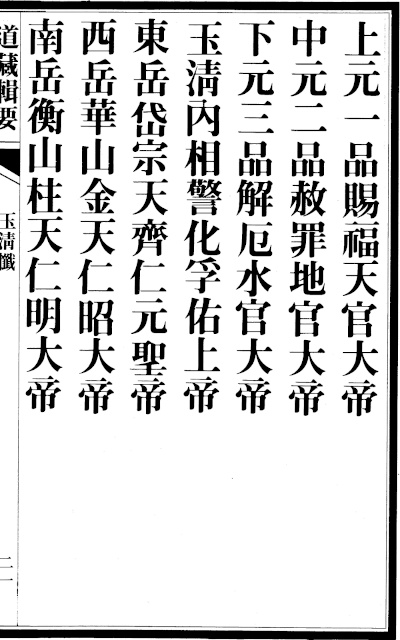 上元一品賜福天官大帝
中元二品赦罪地官大帝
下元三品解厄水官大帝
玉淸內相警化孚佑上帝
東岳岱宗天齊仁元聖帝
西岳華山金天仁昭大帝
南岳衡山柱天仁明大帝
道藏輯要
玉淸懺